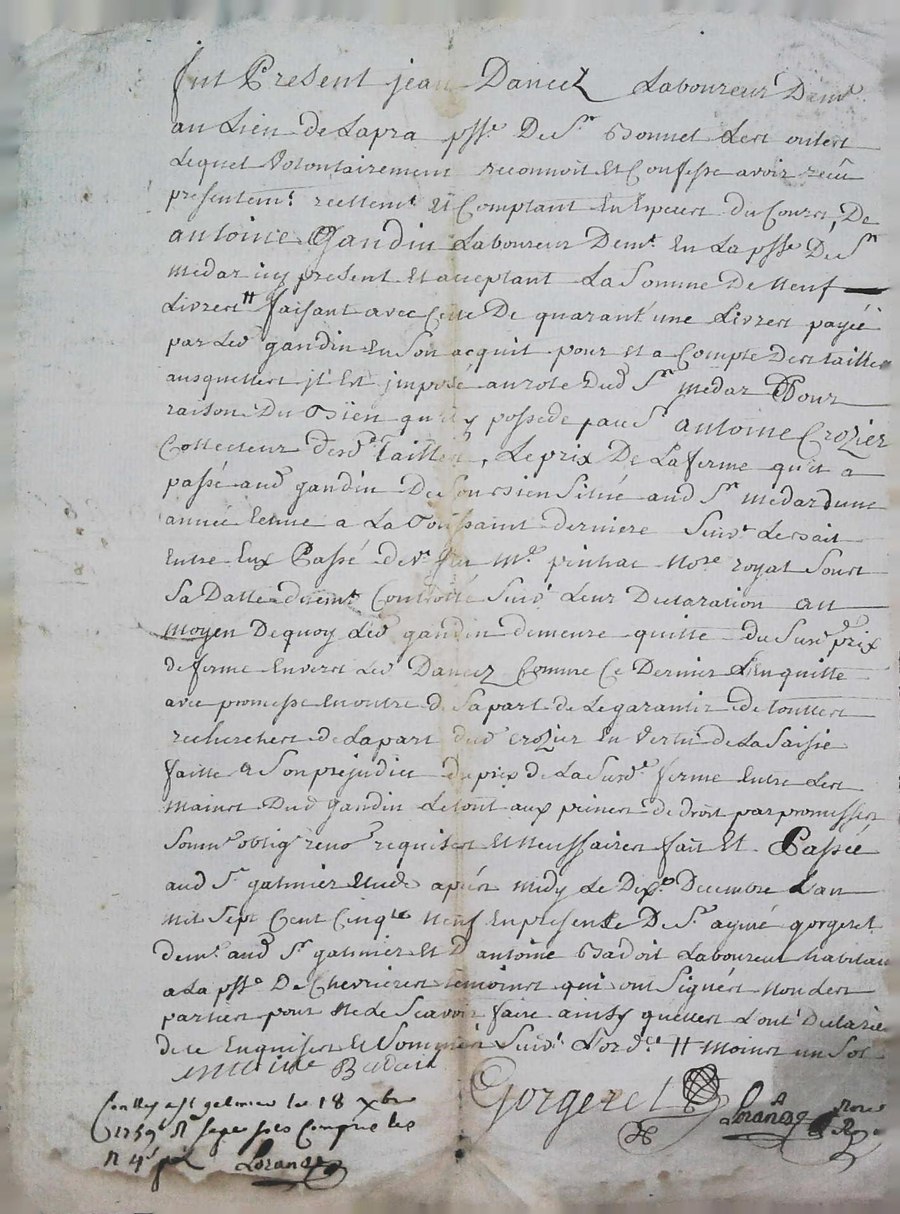 fut Present jean Dancez Laboureur Demt
au Lieu de Lapra psse De St Bonnet Les oulles
Lequel Volontairement reconnoit Et Confesse avoir receu
presentemt reellemt Et Comptant En Especes du Cours, De
antoine Gaudin Laboureur Demt En La psse De St
medar icy present Et acceptant La Somme De Neuf
Livres tt faisant avec Celle De quarant'une Livres payée
par Led gaudin En Son acquit pour Et a Compte Des tailles
ausquelles jl Est jmposé au role dud St medar Pour
raison Du Bien qu'il y possede par Sr antoine Crozier
Collecteur desd Tailles, Le prix De La ferme qu'il a
passé aud gaudin De Son Bien Situé aud St medar dune
année Echue a La Toussaint derniere Suivt Le Bail
Entre Eux Passé devt feu Me pinhac Nore royal Sous
Sa Datte duemt Controllé Suivt Leur Declaration au
moyen Dequoy Led gaudin demeure quitte du Susd prix
de ferme Envers Led Dancez Comme Ce Dernier L'en quitte
avec promesse En outre de Sa part de Le garantir de touttes
recherches de La part dud Crozier En Vertu de La Saisie
faitte a Son prejudice du prix de La Susd ferme Entre Les
mains Dud gaudin Le tout aux peines de droit par promesses
Soumns obligns renons requises Et Necessaires fait Et Passé
aud St galmier Etude après midy Le Dix Decembre L'an
mil Sept Cent Cinqte Neuf En presence De Sr aymé gorgeret
demt aud St galmier Et D'antoine Badoil Laboureur habitant
a La psse De Chevrieres temoins qui ont Signés Non Les
parties pour Ne le Scavoir faire ainsy quelles L'ont Declaré
de ce Enquises Et Sommées Suivt L'ordce tt moins un Sol
antoine Badoil
Gorgeret
Lorange nore R
Conllé a St galmier le 18 xbre
1759 R Sept sols Compris les
n 4s pl Lorange